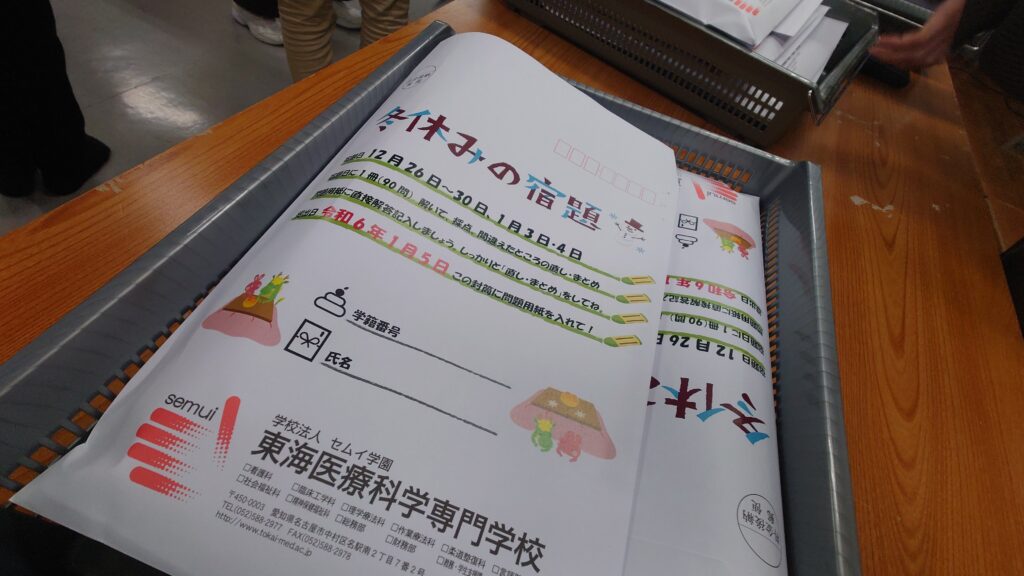 冬休みの宿題
12月26日～30日、1月3日・4日
1冊(90問)解いて、採点、間違えたところの直し・まとめ
問題用紙に直接解答記入しましょう。しっかりと「直し・まとめ」をしてね。
提出日 令和6年1月5日 この封筒に問題用紙を入れて！
学籍番号
氏名
semui
学校法人 セムイ学園
東海医療科学専門学校
□看護科 □臨床工学科 □理学療法科 □作業療法科 □柔道整復科
□社会福祉科 □精神保健福祉科 □総務部 □財務部
〒450-0003 愛知県名古屋市中村区名駅南2丁目7番2号
TEL(052)588-2977 FAX(052)588-2978
http://www.tokai-med.ac.jp
令和6年1
12月26日
冬休み